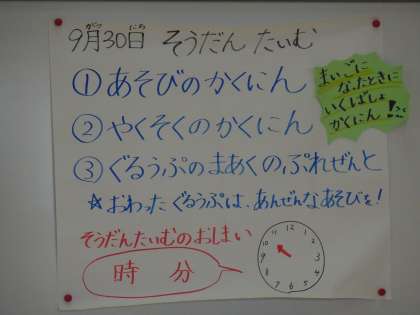 9月30日 そうだん たいむ
がつ にち
①あそびのかくにん
②やくそくのかくにん
③ぐるうぷのまあくのぷれぜんと
☆おわったぐるうぷは、あんぜんなあそびを!
まいごに
なったときに
いくばしょ
かくにん!
そうだんたいむのおしまい
時 分
12
1
2
3
4
5
6
7
8
9
10
11